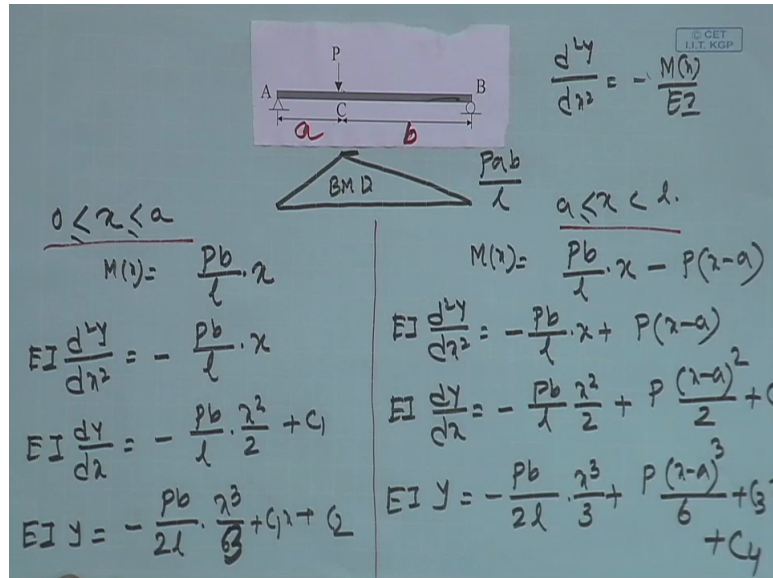 © CET
I.I.T. KGP
P
A B
C
a b
d²y/dx² = - M(x)/EI
BMD
Pab/l
0 ≤ x ≤ a
M(x) = Pb/l · x
EI d²y/dx² = - Pb/l · x
EI dy/dx = - Pb/l · x²/2 + C₁
EI y = - Pb/2l · x³/3 + C₁x + C₂
a ≤ x < l.
M(x) = Pb/l · x - P(x-a)
EI d²y/dx² = - Pb/l · x + P(x-a)
EI dy/dx = - Pb/l x²/2 + P (x-a)²/2 + C
EI y = - Pb/2l · x³/3 + P(x-a)³/6 + C₃
+ C₄